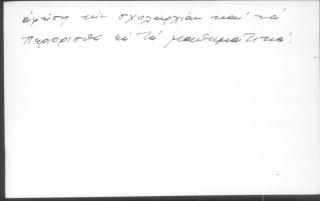 ἀφήση τὴν σχολαρχίαν καὶ νὰ
περιορισθῆ εἰς τὰ μαθηματικά.